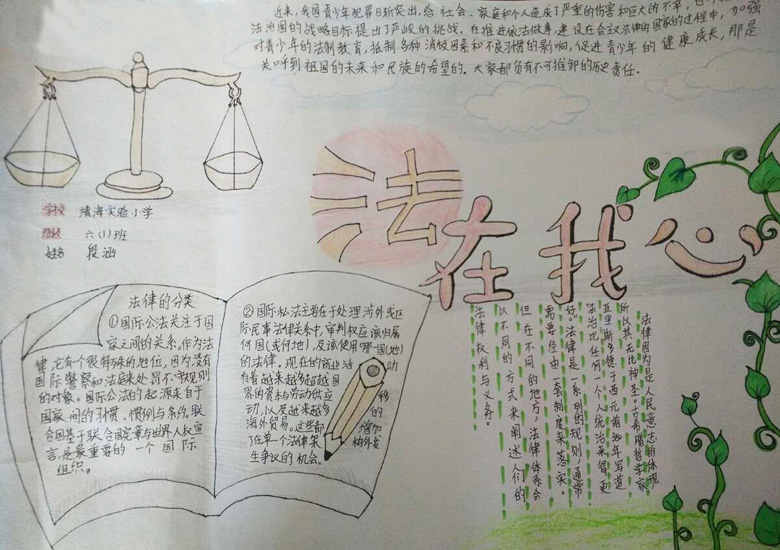 近来,我国青少年犯罪日渐突出,给社会、家庭和个人造成了严重的伤害和巨大的不幸,
法治国的战略目标提出了严峻的挑战。在推进依法做事,建设社会主义法律的国家的过程中,加强
对青少年的法制教育,抵制各种消极因素和不良习惯的影响,促进青少年的健康成长,那是
关呼到祖国的未来和民族的希望的。大家都负有不可推卸的历史责任.
法在我心
学校 靖海实验小学
班级 六(1)班
姓名 段涵
法律的分类
①国际公法关注于国
家之间的关系,作为法
律,它有个很特殊的地位,因为没有
国际警察和法庭来处罚不服规则
的对象。国际公法的起源来自于
国家间的习惯、惯例与条约,联
合国基于联合国宪章与世界人权宣
言,是最重要的一个国际
组织。
②国际私法主要在于处理涉外或国
际民事法律关系中,审判权应该归属
何国(或何地),及该使用哪一国(地)
的法律。现在的商业活动
有着越来越多超越国
界的资本与劳动供应移
动,以及越来越多的
海外贸易。这些都增加
了在单个法律架构外发
生争议的机会。
法律因为是人民意志的体现
所以其无比神圣。古希腊哲学家
亚里斯多德于西元前350年写道
"法治比任何一个人统治来得更
好。"法律是一系列的规则,通常
需要经由一套制度来落实。
但在不同的地方,法律体系会
以不同的方式来阐述人们的
法律权利与义务。